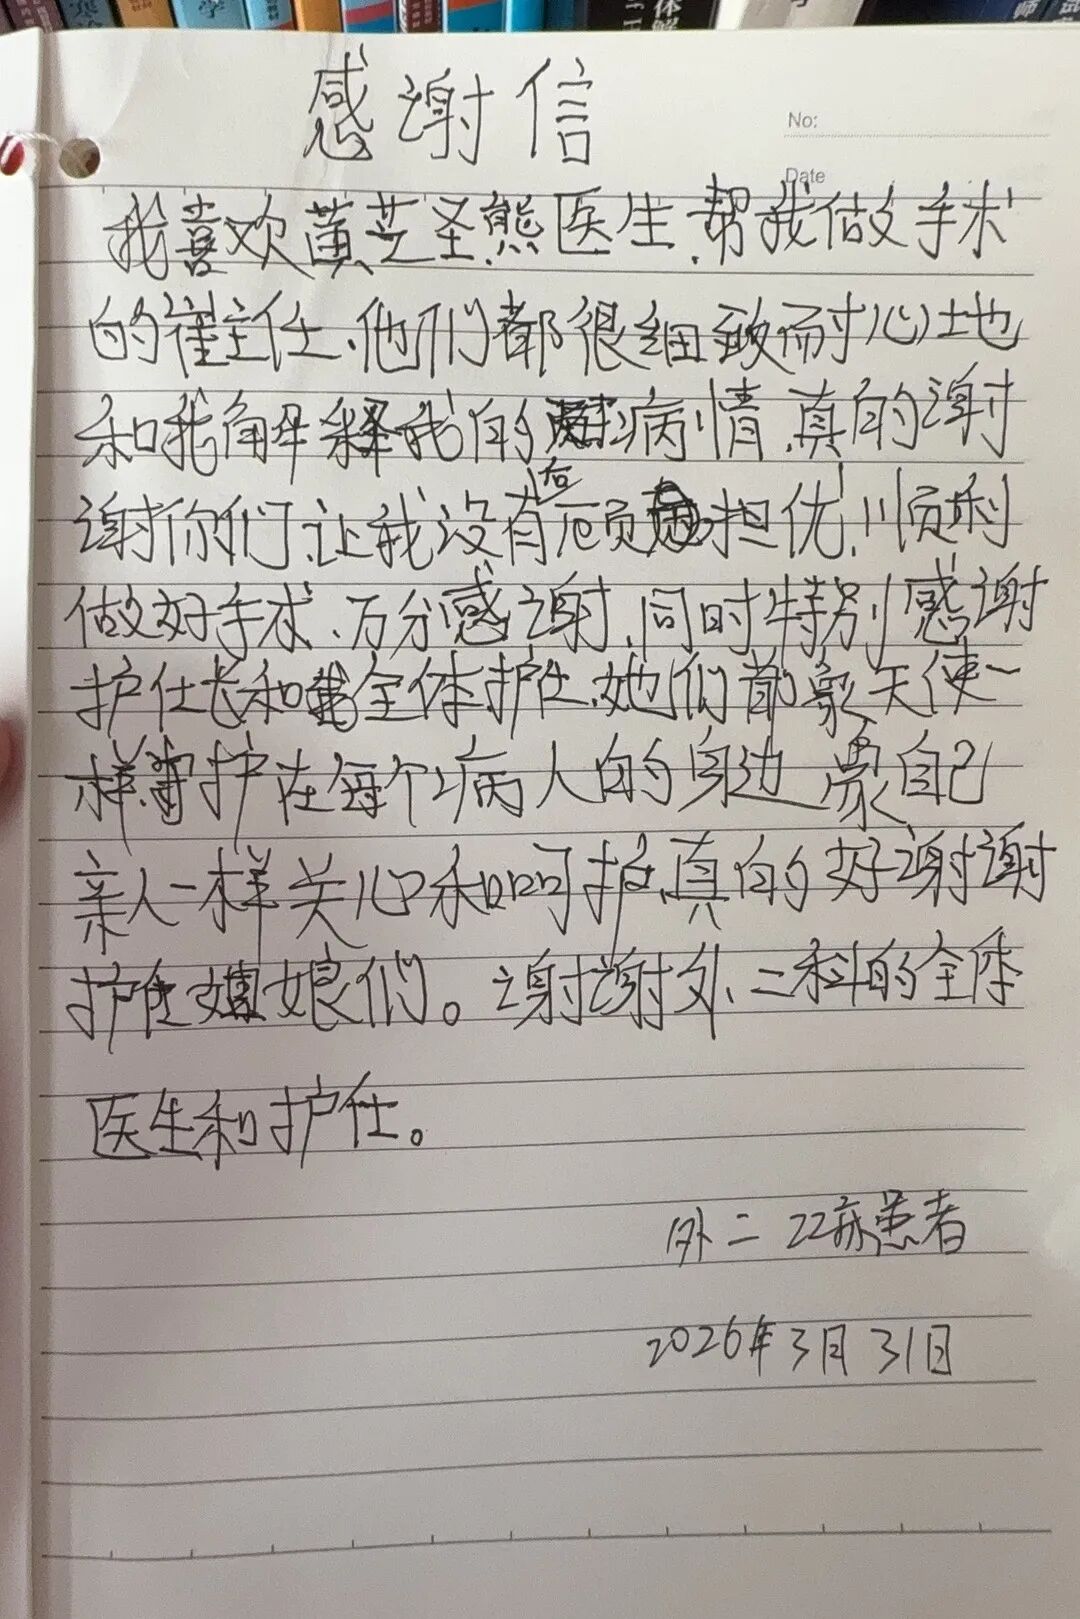 学
No:
Date
感谢信
我喜欢黄芝圣、熊医生、帮我做手术
的崔主任、他们都很细致而耐心地
和我解释我的病情、真的谢
谢你们、让我没有后顾担优、顺利
做好手术、万分感谢、同时特别感谢
护仕长和全体护仕、她们都象天使一
样守护在每个病人的身边 象自己
亲人一样关心和呵护、真的好谢谢
护仕姑娘们。谢谢外二科的全体
医生和护仕。
外二 22病患者
2026年3月31日